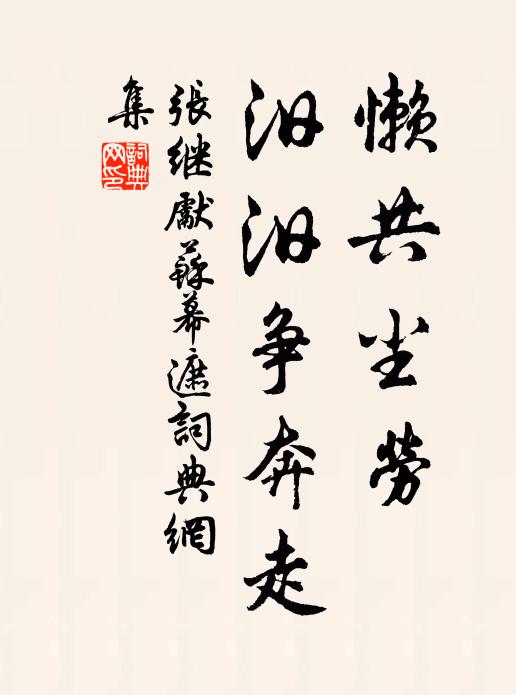 懒共尘劳
汩汩争奔走
張継獻蘇幕遮詞典網
集
詞典網印